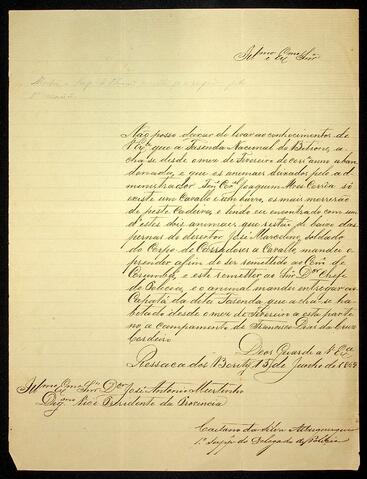 Illmo Exmo Snr
Não posso deixar de levar ao conhecimento de
V. Exa. que a Fazenda Nacional do Betione, a
cha se desde o mez de Fevereiro do corre anno aban
donada, e que os animaes deixados pelo ad
menistrador Joaquim Correa só
existe um Cavallo e um burro, os mais morrerão
de peste Cadeira, e tendo eu encontrado com um
d'estes dois animaes, que restão de baixo das
pernas do desertor Marcelino, soldado
do Corpo de Cassadores a Cavallo mandei o
prender afim de ser remettido ao
Corumbá, e este remetter ao Snr Dor Chefe
de Policia, e o animal mandei entregar ao
Capatás da dita Fazenda que acha se ha
betado desde o mez de Fevereiro a esta parte
no acampamento de Francisco Dias da Cruz
Cordeiro
Deos Guarde a V. Exa
Ressaca dos 15 de Junho de
Illmo Exmo Snr Dor José Antonio Murtinho
Digmo Vice Prezidente da Provincia
Caetano da Silva Albuquerque
1º Supp do Delegado de Policia